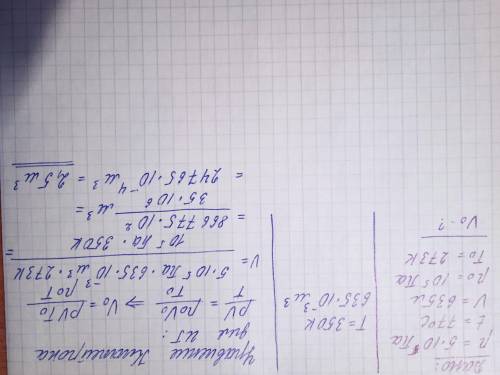 Дано:
p = 5·10⁵ Па
t = 77°C
V = 635 л
p₀ = 10⁵ Па
T₀ = 273 К
V₀ - ?
T = 350 К
635·10⁻³ м³
Уравнение Клапейрона
для ИГ:
pV/T = p₀V₀/T₀ ⇒ V₀ = pVT₀/p₀T
V = 5·10⁵ Па · 635·10⁻³ м³ · 273 К / 10⁵ Па · 350 К =
= 866775·10² / 35·10⁶ м³ =
= 24765·10⁻⁴ м³ = 2,5 м³